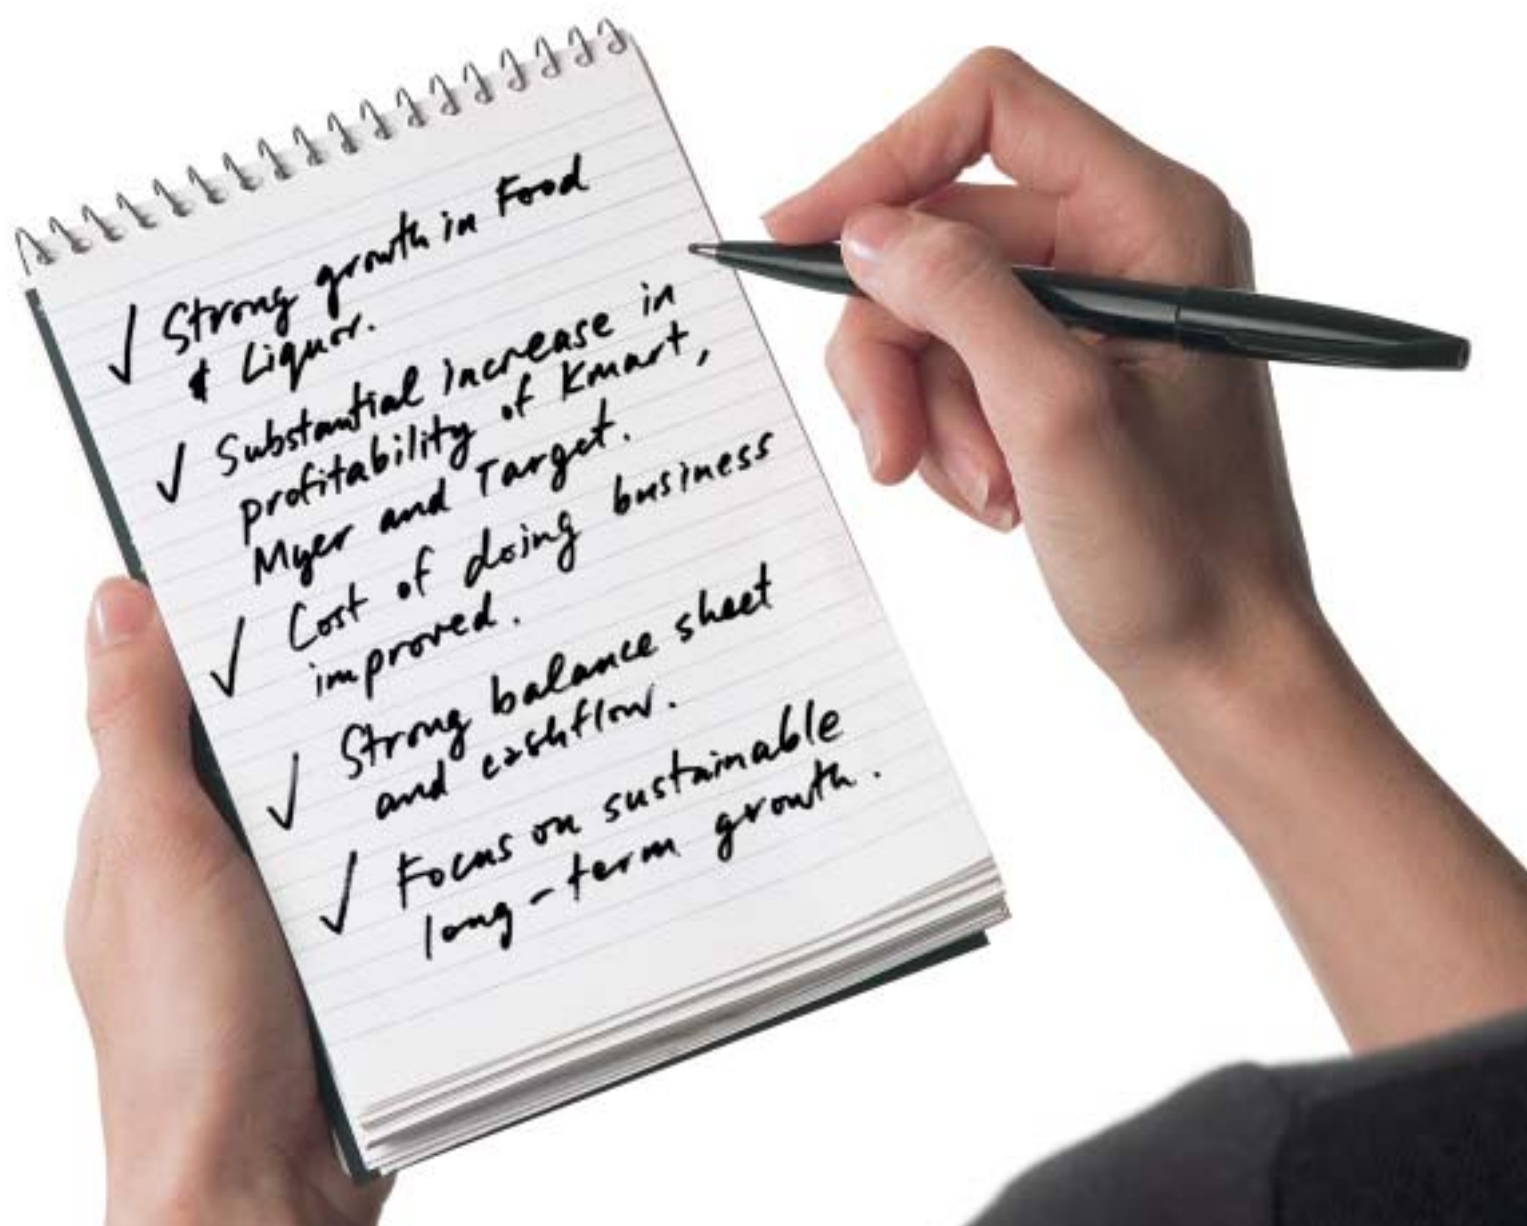 ✓ Strong growth in Food
& Liquor.
✓ Substantial increase in
profitability of Kmart,
Myer and Target.
✓ Cost of doing business
improved.
✓ Strong balance sheet
and cashflow.
✓ Focus on sustainable
long-term growth.